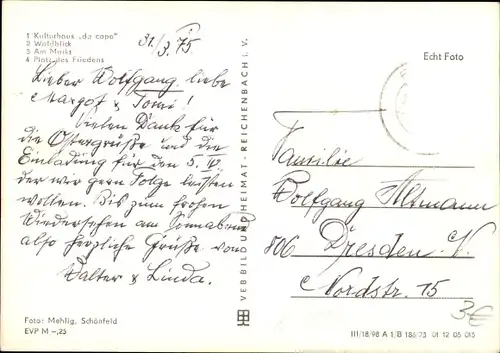 1 Kulturhaus „da capo"
2 Waldblick
3 Am Markt
4 Platz des Friedens
31./3.75.
Lieber Wolfgang, liebe
Margot & Tomi!
Vielen Dank für
die Ostergrüße und die
Einladung für den 5. IV.
der wir gern Folge leisten
wollen. Bis zum frohen
Wiedersehen am Sonnabend
also herzliche Grüße von
Walter & Linda.
Foto: Mehlig, Schönfeld
EVP M –,25
VEB BILD UND HEIMAT · REICHENBACH i. V.
Echt Foto
Familie
Wolfgang Altmann
806 Dresden N.
Nordstr. 15
3€
III/18/98 A 1/B 186/73 01 12 05 015